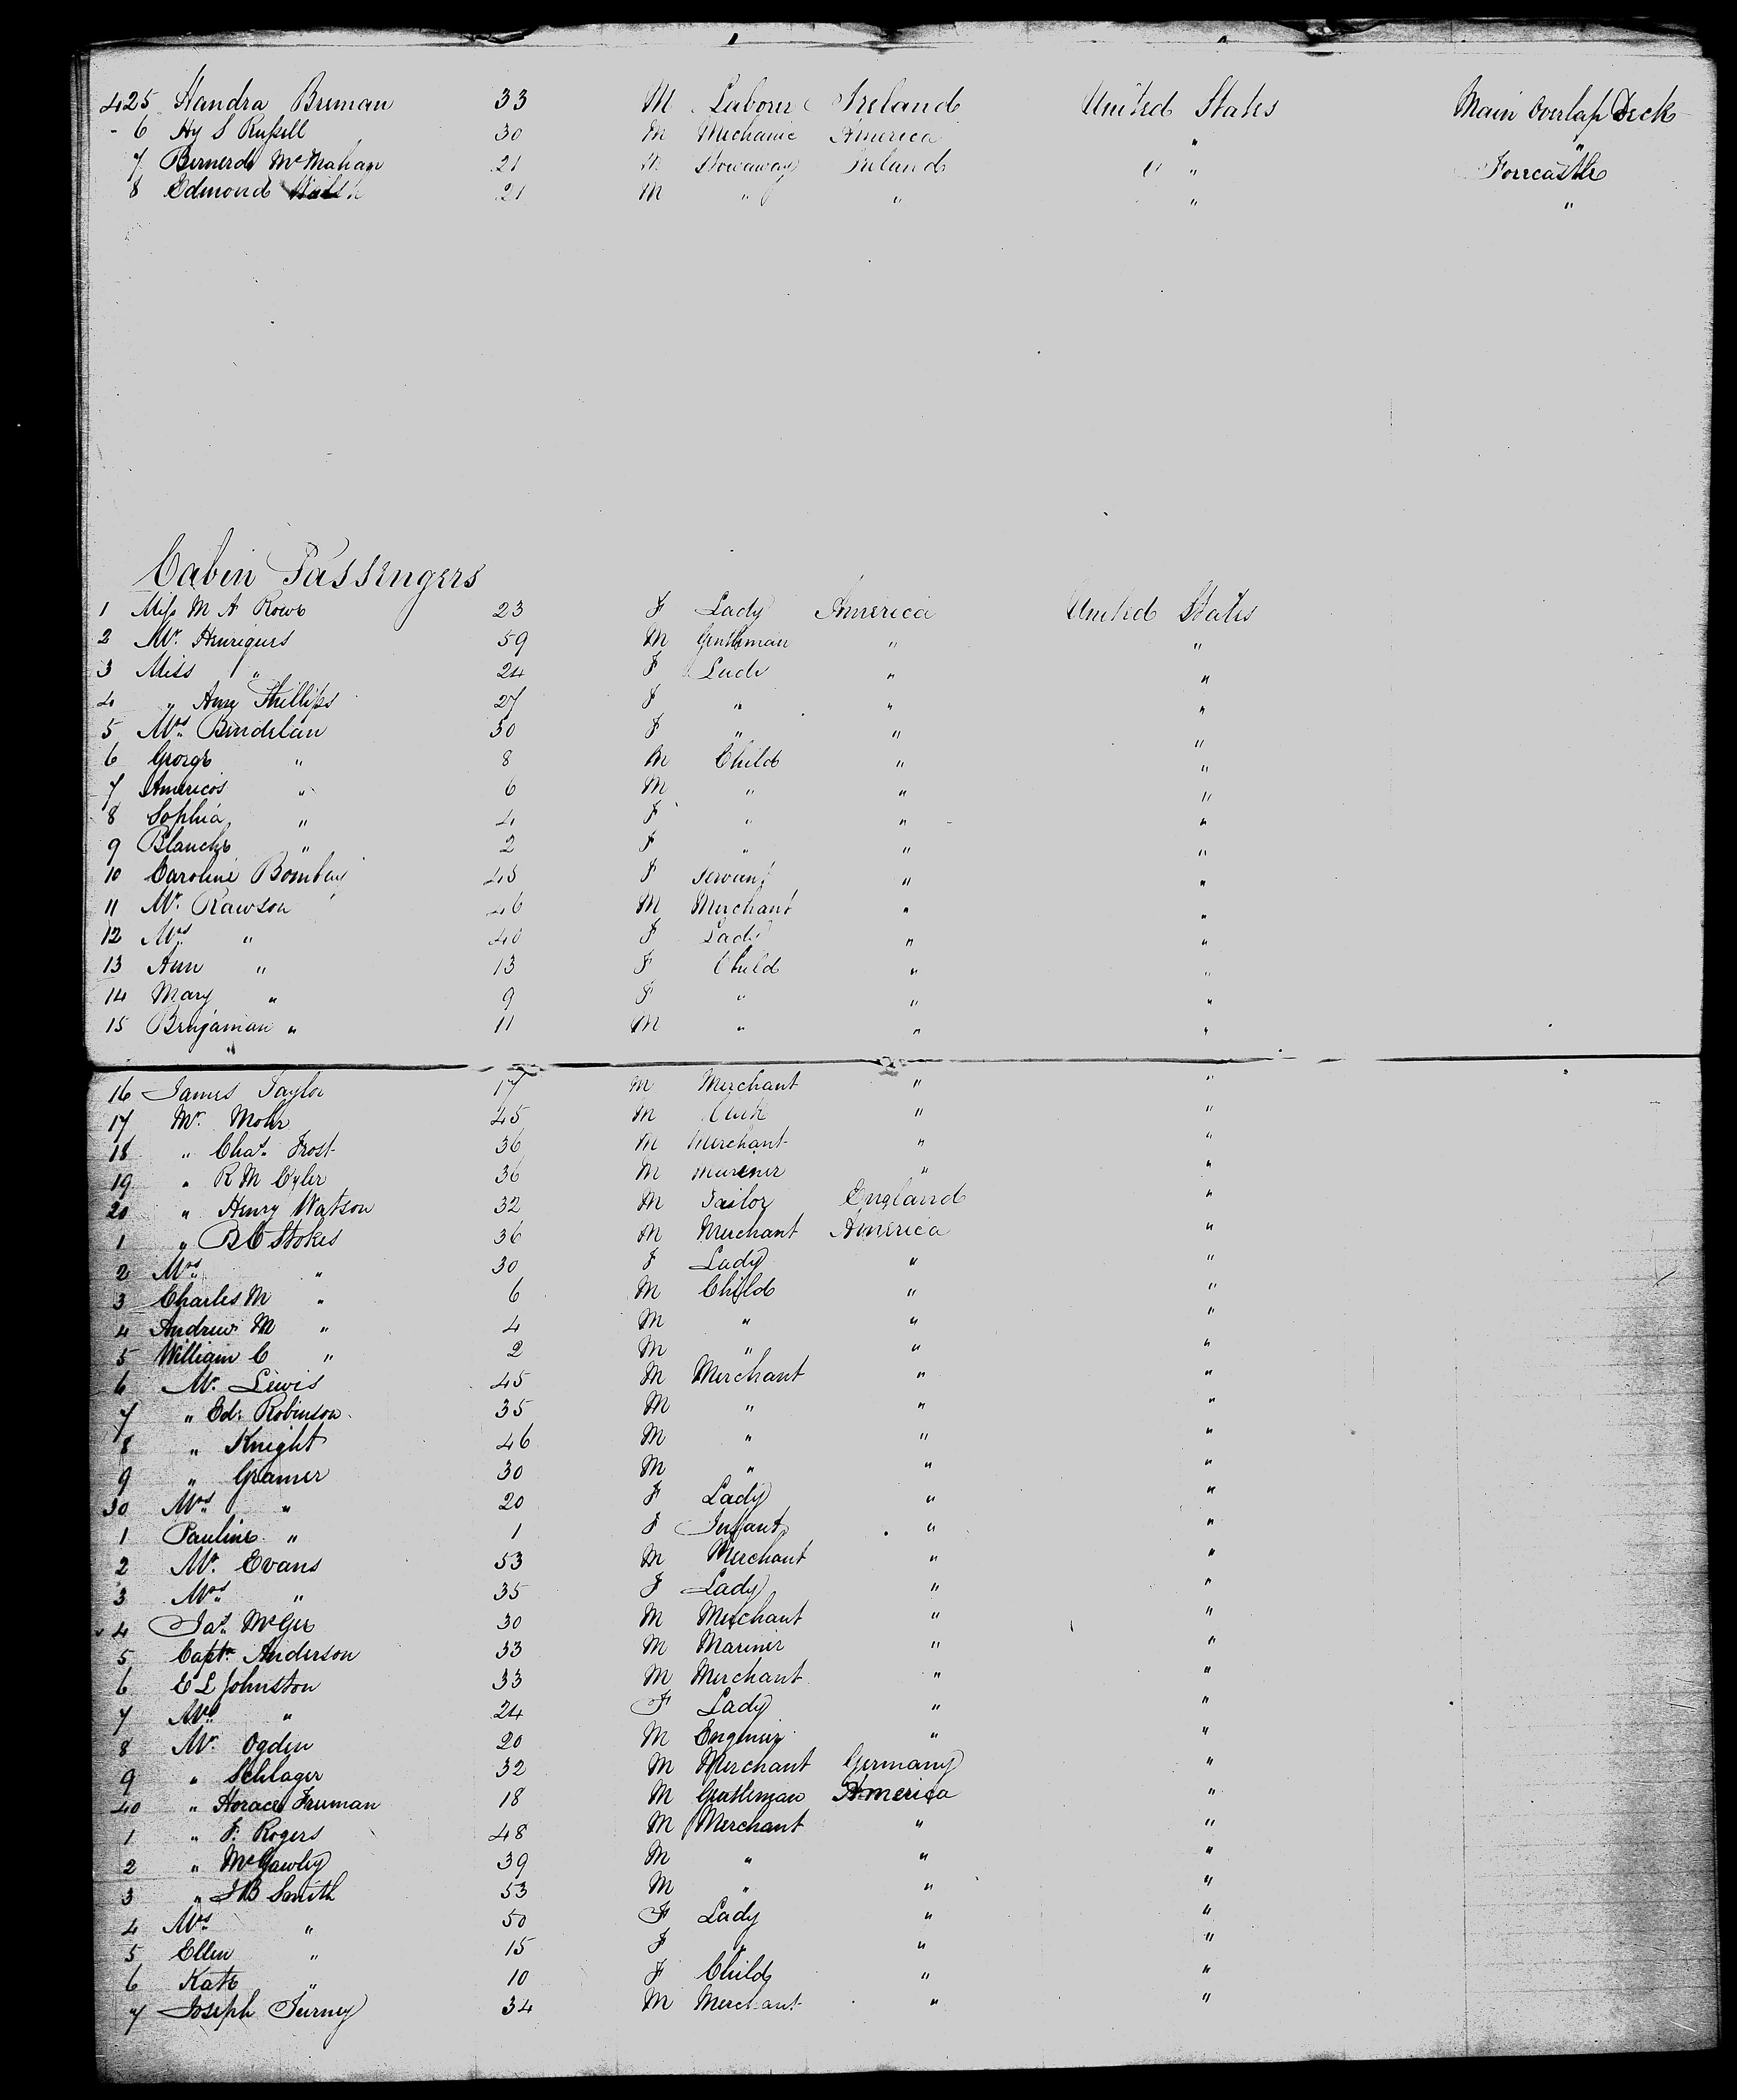 425 Handra Brennan 33 M Laborer Ireland United States Main Overlap Deck
- 6 Hy S Russell 30 M Mechanic America " "
7 Bernerd McMahan 21 M Stowaway Ireland " " Forrcastle
8 Edmond Walsh 21 M " " " "
Cabin Passengers
1 Miss M A Rowe 23 F Lady America United States
2 Mr. Henriques 59 M Gentleman " "
3 Miss " 24 F Lady " "
4 " Amy Phillips 27 F " " "
5 Mrs. Bendelan 30 F " " "
6 George " 8 M Child " "
7 Americos " 6 M " " "
8 Sophia " 4 F " " "
9 Blanche " 2 F " " "
10 Caroline Bombay 45 F Servant " "
11 Mr. Rawson 46 M Merchant " "
12 Mrs " 40 F Lady " "
13 Ann " 13 F Child " "
14 Mary " 9 F " " "
15 Benjaman " 11 M " " "
16 James Taylor 17 M Merchant " "
17 Mr. Mohr 45 M " "
18 " Chas. Frost 36 M Merchant " "
19 " R M Cyler 36 M " "
20 " Henry Watson 32 M Tailor England "
1 " B C Stokes 36 M Merchant America "
2 Mrs " 30 F Lady " "
3 Charles M " 6 M Child " "
4 Andrew M " 4 M " " "
5 William C " 2 M " " "
6 Mr. Lewis 45 M Merchant " "
7 " Ed: Robinson 35 M " " "
8 " Knight 46 M " " "
9 " Gramer 30 M " " "
30 Mrs " 20 F Lady " "
1 Pauline " 1 F Infant " "
2 Mr. Evans 53 M Merchant " "
3 Mrs " 35 F Lady " "
4 Jas. McGee 30 M Merchant " "
5 Captn. Anderson 33 M Mariner " "
6 E L Johnston 33 M Merchant " "
7 Mrs " 24 F Lady " "
8 Mr. Ogden 20 M Engineer " "
9 " Schlager 32 M Merchant Germany "
40 " Horace Freeman 18 M Gentleman America "
1 " F. Rogers 48 M Merchant " "
2 " McGawley 39 M " " "
3 " J B Smith 53 M " " "
4 Mrs " 50 F Lady " "
5 Ellen " 15 F " " "
6 Kate " 10 F Child " "
7 Joseph Turney 34 M Merchant " "